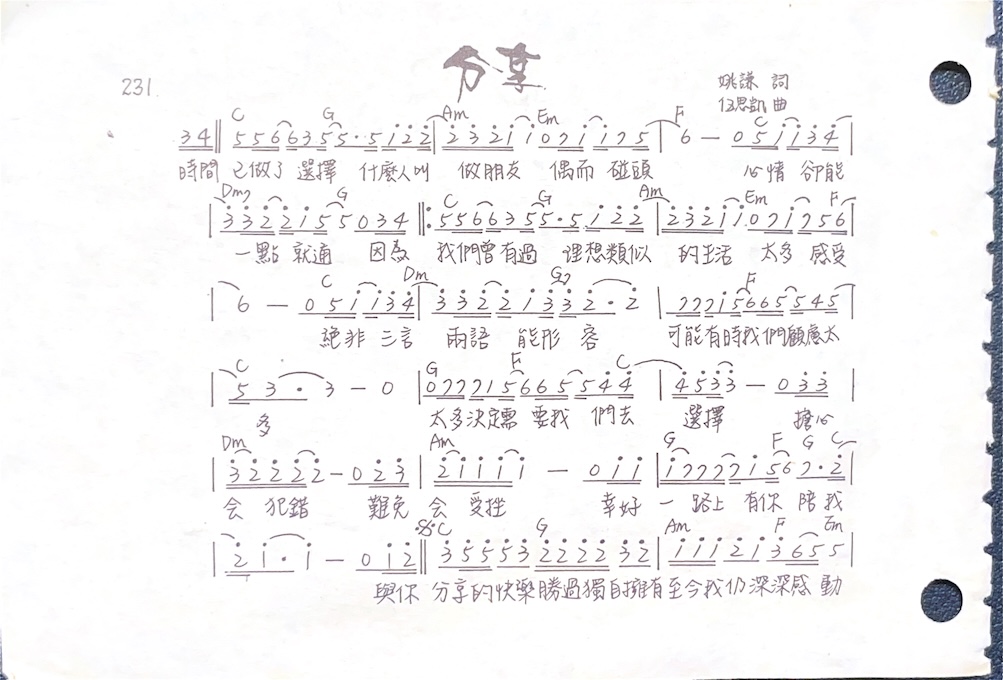 分享
231.
姚謙 詞
伍思凱 曲
C G Am Em F C
34 556635 5·5122 23211 071 175 6 — 05 1134
時間 已做了 選擇 什麼人叫 做朋友 偶而 碰頭 心情 卻能
Dm7 G C G Am Em F
332215 5034 556635 5·5122 23211 071756
一點 就通 因為 我們曾有過 理想類似 的生活 太多 感受
C Dm G7 F
6 — 051134 332213 32·2 7771566 5545
絕非 三言 兩語 能形 容 可能有時我們顧慮太
C G F C
53·3 — 0 07771566 5544 4533 — 033
多 太多決定需 要我 們去 選擇 擔心
Dm Am G F G C
32222 — 023 21111 — 011 17777156 7·2
会 犯錯 難免 会 受挫 幸好 一 路上 有你 陪我
C G Am F Em
21·1 — 012 35553222232 1112136 55
與你 分享的快樂勝過獨自擁有至今我仍深深感 動